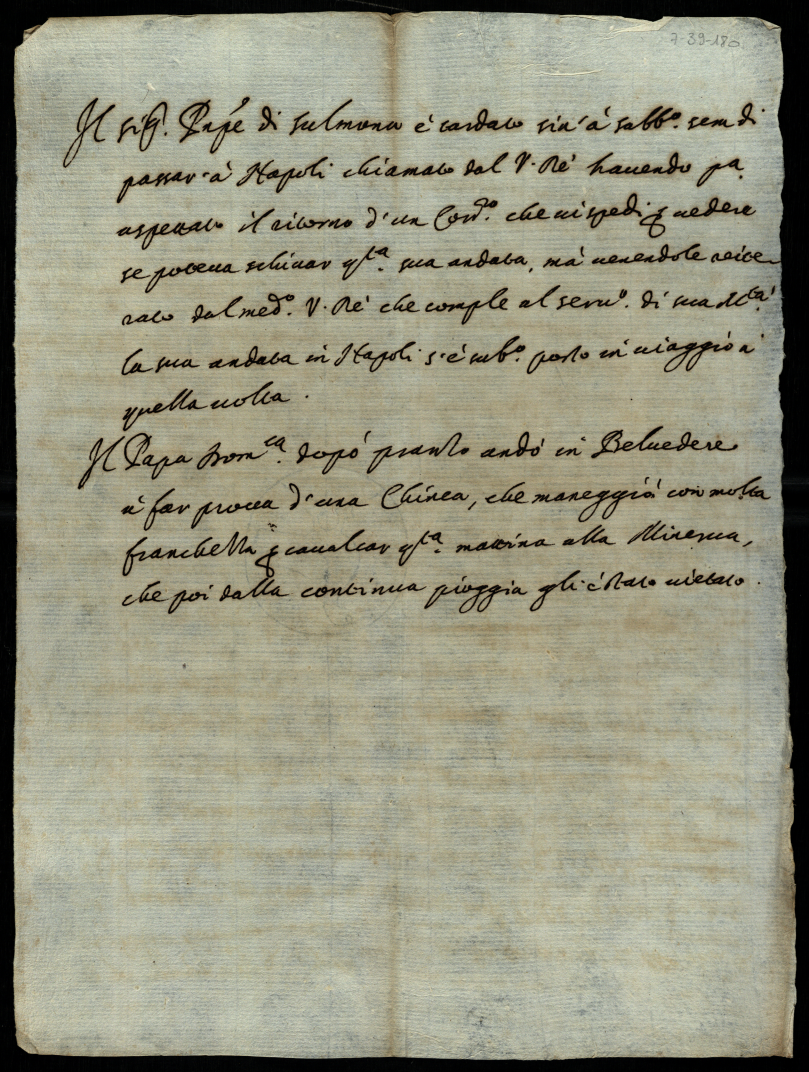 7-39-180
Il sig.r Pnpe di sulmona è tardato sin'à sabb.o sera di
passar'à Napoli chiamato dal V. Rè hauendo pa
aspettato il ritorno d'un Corr.o che ui spedi p uedere
se poteua schiuar q.ta sua andata, mà uenendole reite-
rato dal med.o V. Rè che comple al seru.o di sua M.tà
la sua andata in Napoli s'è sub.o posto in uiaggio à
quella uolta.
Il Papa Dom.ca dopò pranso andò in Beluedere
à far proua d'una Chinea, che maneggiò con molta
franchezza p caualcar q.ta mattina alla Minerua,
che poi dalla continua pioggia gli è stato uietato.